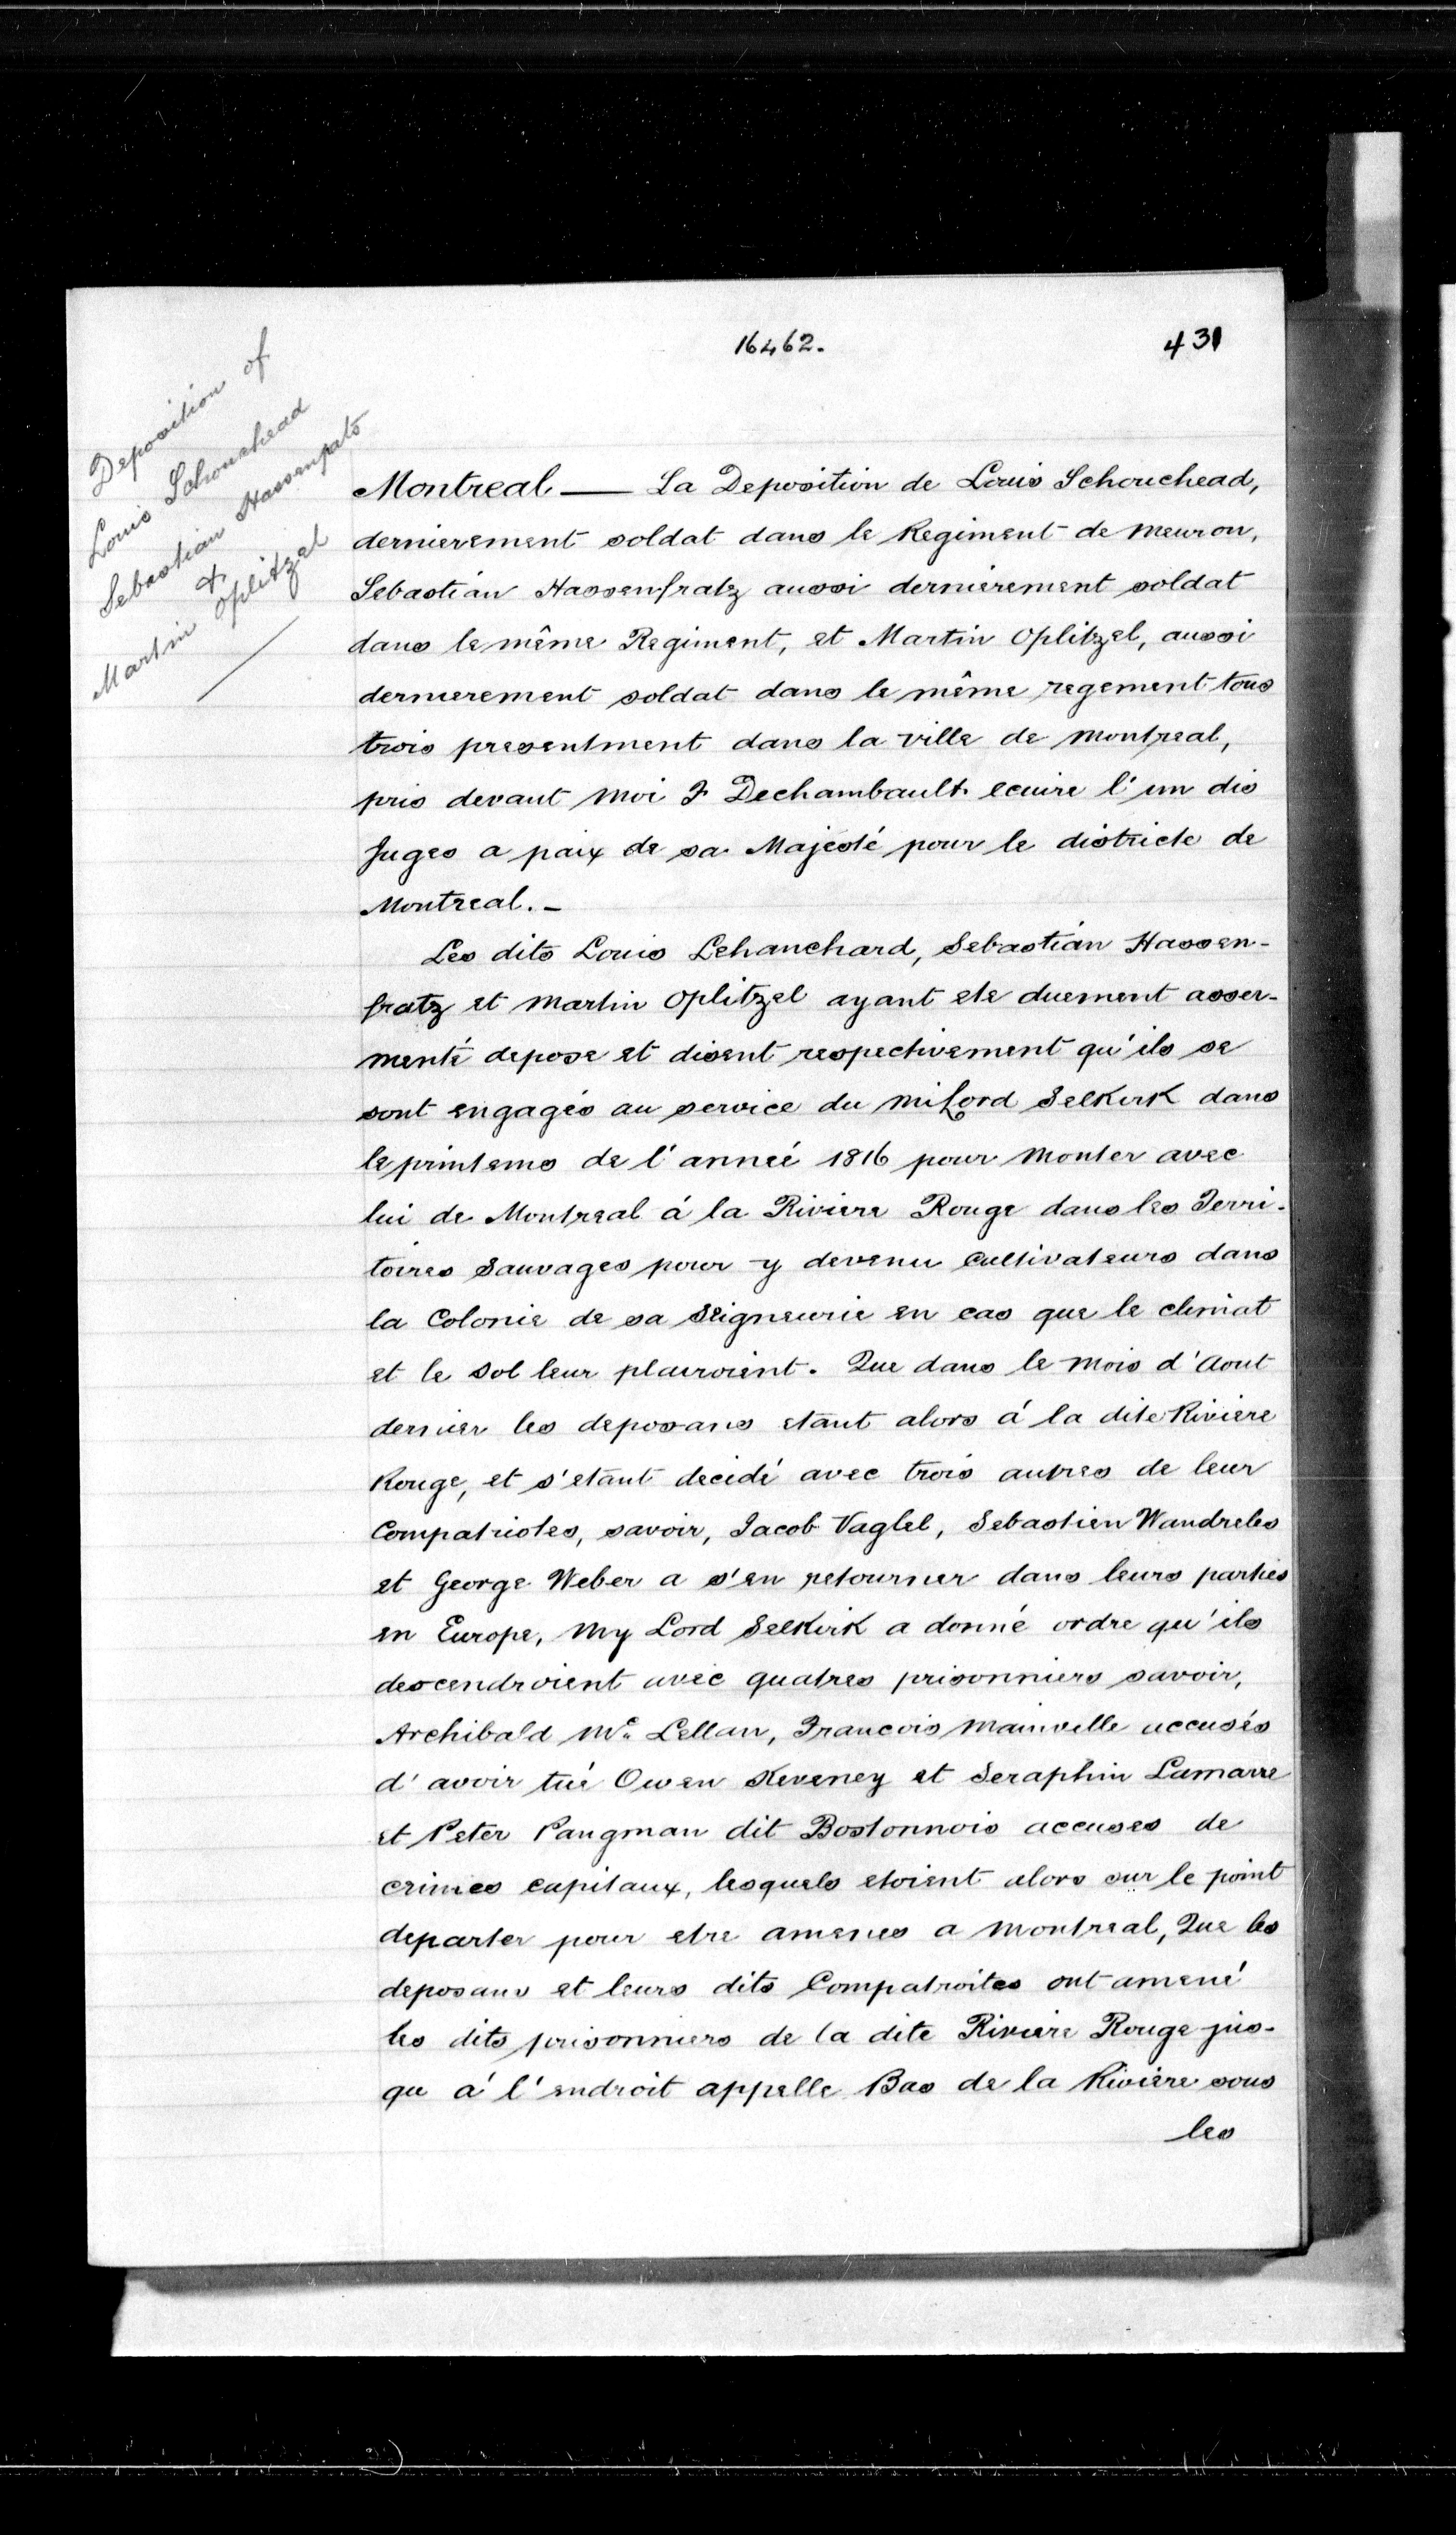 16462.
431
Deposition of
Louis Schouchead
Sebastian Hassenpats
&
Martin Oplitzel
Montreal — La Deposition de Louis Schouchead,
dernierement soldat dans le Regiment de Meuron,
Sebastián Hassenfratz aussi dernièrement soldat
dans le même Regiment, et Martin Oplitzel, aussi
dernierement soldat dans le même regement tous
trois presentment dans la ville de Montreal,
pris devant Moi F Dechambault ecuire l'un dis
Juges a paix de sa Majesté pour le districte de
Montreal. —
Les dits Louis Lehanchard, Sebastián Hassen-
fratz et Martin Oplitzel ayant ete duement asser-
menté depose et disent respectivement qu'ils se
sont engagés au service du miLord Selkirk dans
le printems de l'anneé 1816 pour Monter avec
lui de Montreal á la Riviere Rouge dans les Terri-
toires Sauvages pour y devenu Cultivateurs dans
la Colonie de sa Seigneurie en cas que le climat
et le Sol leur plairoient. Que dans le mois d'Aout
dernier les deposans etant alors á la dite Riviere
Rouge, et s'etant decidé avec trois autres de leur
Compatriotes, savoir, Jacob Vaglel, Sebastien Wandreles
et George Weber a s'en retourner dans leurs parties
en Europe, My Lord Selkirk a donné ordre qu'ils
descendroient avec quatres prisonniers savoir,
Archibald Mc Lellan, Francois Mainville accusés
d'avoir tué Owen Keveney et Seraphin Lamarre
et Peter Pangman dit Bostonnois accuses de
crimes capitaux, lesquels etoient alors sur le point
departer pour etre amenes a Montreal, Que les
deposans et leurs dits Compatroites ont amené
les dits prisonniers de la dite Riviere Rouge jus-
qu á l'endroit appelle Bas de la Riviere sous
les